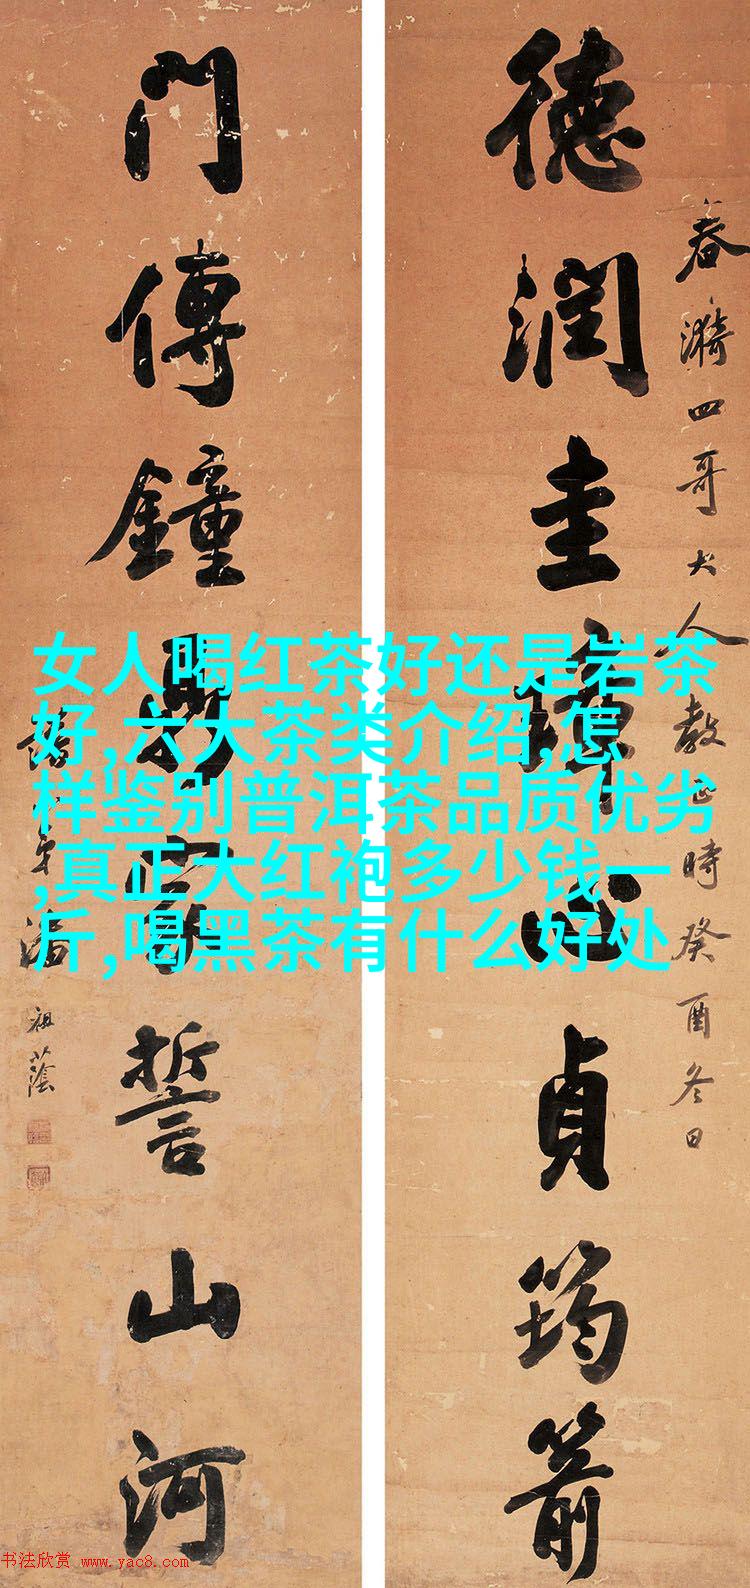 春漪四哥大人教正時癸酉冬日
德潤圭璋心貞筠箭
門傳鐘
家誓山河
潘祖蔭
女人喝红茶好还是岩茶
好,六大茶类介绍,怎
样鉴别普洱茶品质优劣
,真正大红袍多少钱一
斤,喝黑茶有什么好处
书法欣赏 www.yac8.com